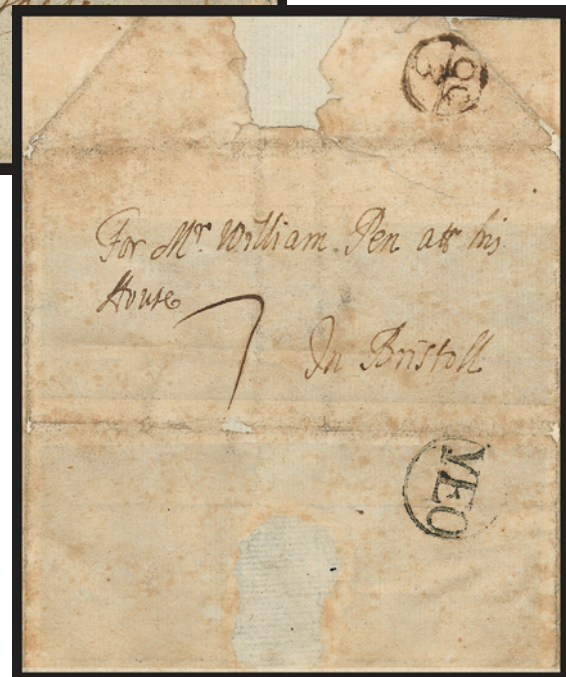 OC
3
For Mr. William Pen att his
House
7
In Bristoll
YEO